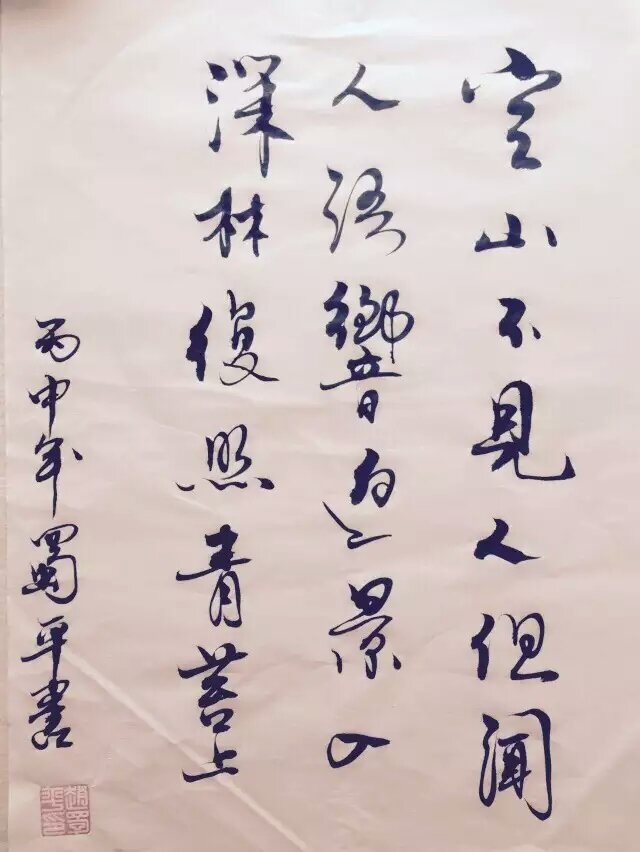 空山不見人但聞
人語響返景入
深林復照青苔上
丙申年蜀平書